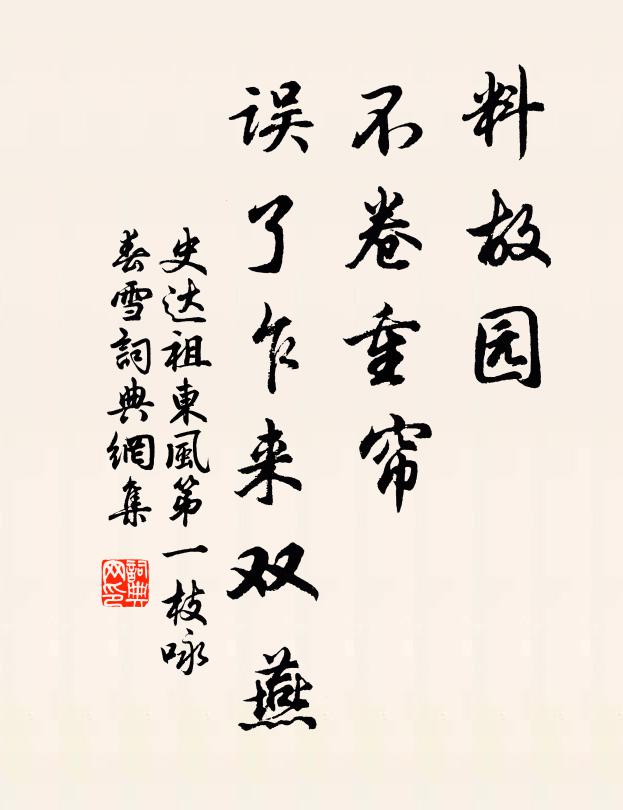 料故园
不卷重帘
误了乍来双燕
史达祖東風第一枝咏
春雪詞典網集
詞典网印